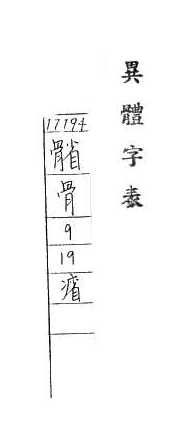 異體字表
17194
骨
9
19